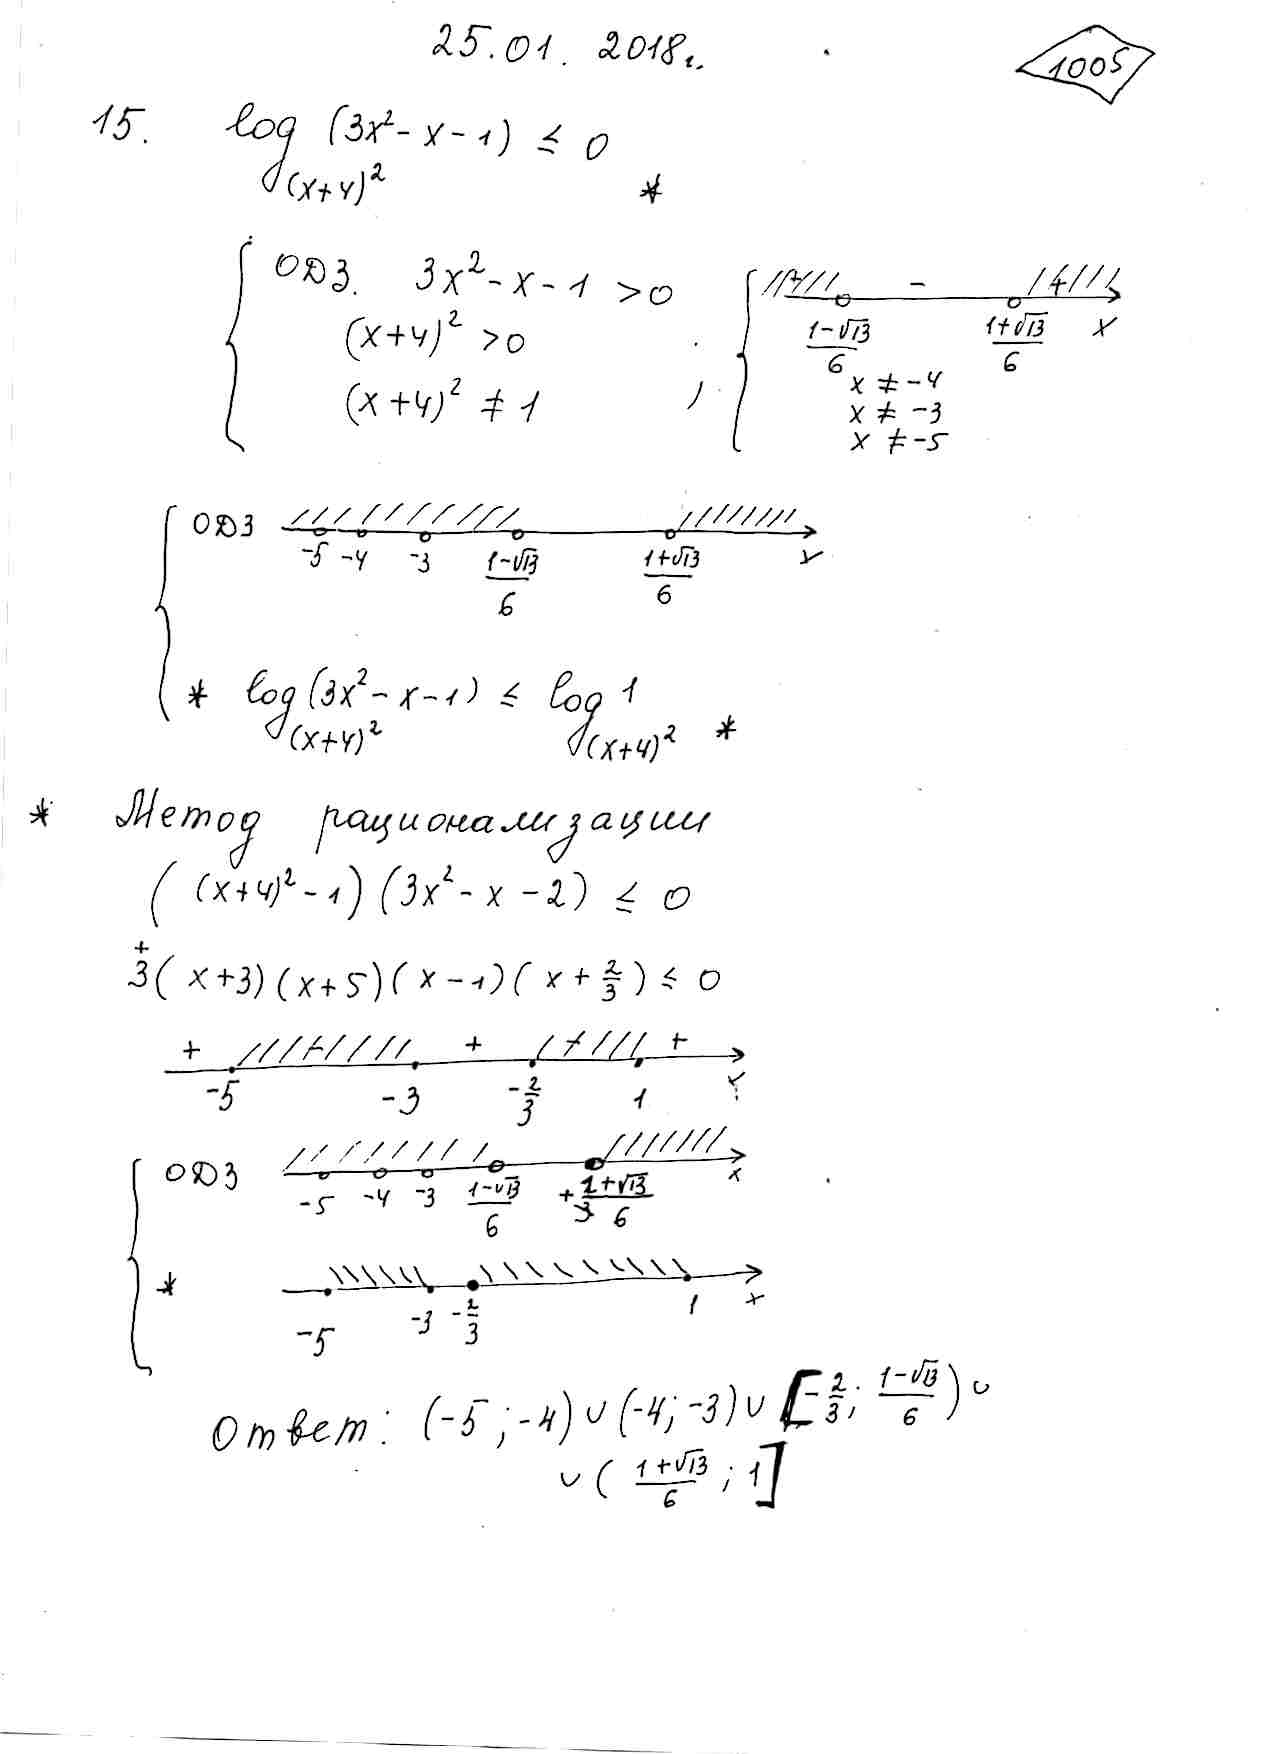 25.01. 2018г.
1005
15. log_{(x+4)^2} (3x^2 - x - 1) ≤ 0 *
ОДЗ. 3x^2 - x - 1 > 0
(x+4)^2 > 0
(x+4)^2 ≠ 1 ,
+ - +
(1-√13)/6 (1+√13)/6 x
x ≠ -4
x ≠ -3
x ≠ -5
ОДЗ -5 -4 -3 (1-√13)/6 (1+√13)/6 x
* log_{(x+4)^2} (3x^2 - x - 1) ≤ log_{(x+4)^2} 1 *
* Метод рационализации
((x+4)^2 - 1) (3x^2 - x - 2) ≤ 0
+
3(x+3)(x+5)(x-1)(x+2/3) ≤ 0
+ - + - +
-5 -3 -2/3 1 x
ОДЗ -5 -4 -3 (1-√13)/6 (1+√13)/6 x
* -5 -3 -2/3 1 x
Ответ: (-5; -4) ∪ (-4; -3) ∪ [-2/3; (1-√13)/6) ∪
∪ ((1+√13)/6; 1]